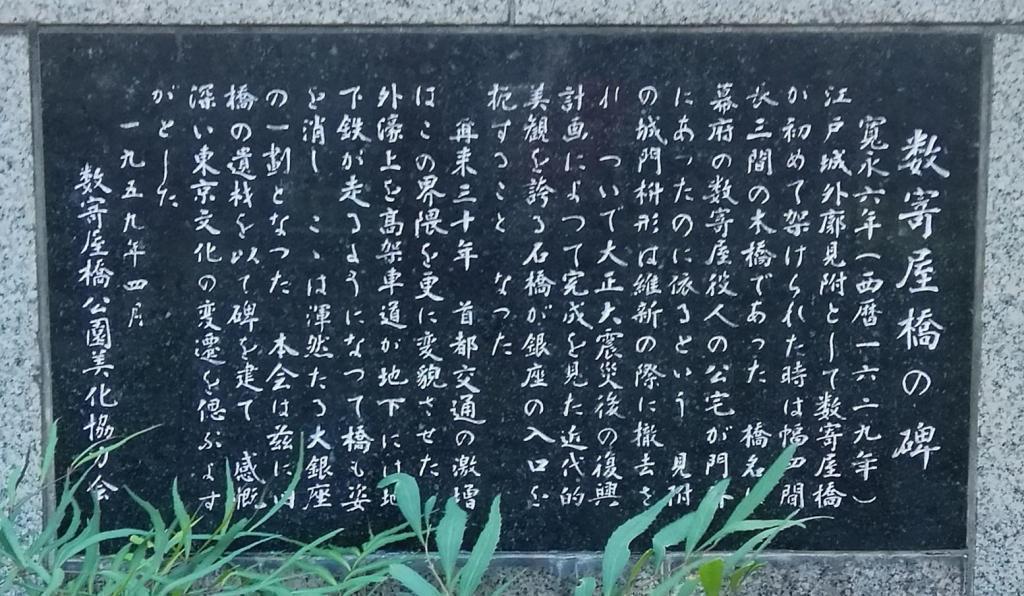 数寄屋橋の碑
寛永六年(西暦一六二九年)
江戸城外廓見附として数寄屋橋
が初めて架けられた時は幅四間
長三間の木橋であった 橋名は
幕府の数寄屋役人の公宅が門外
にあったのに依るという 見附
の城門枡形は維新の際に撤去さ
れ ついで大正大震災後の復興
計画によって完成を見た近代的
美観を誇る石橋が銀座の入口を
扼すること なった
再来三十年 首都交通の激増
はこの界隈を更に変貌させた
外濠上を高架車道が地下には地
下鉄が走るようになって橋も姿
を消し こゝは渾然たる大銀座
の一劃となった 本会は茲に旧
橋の遺材を以て碑を建て 感慨
深い東京文化の変遷を偲ぶよす
がとした
一九五九年四月
数寄屋橋公園美化協力会